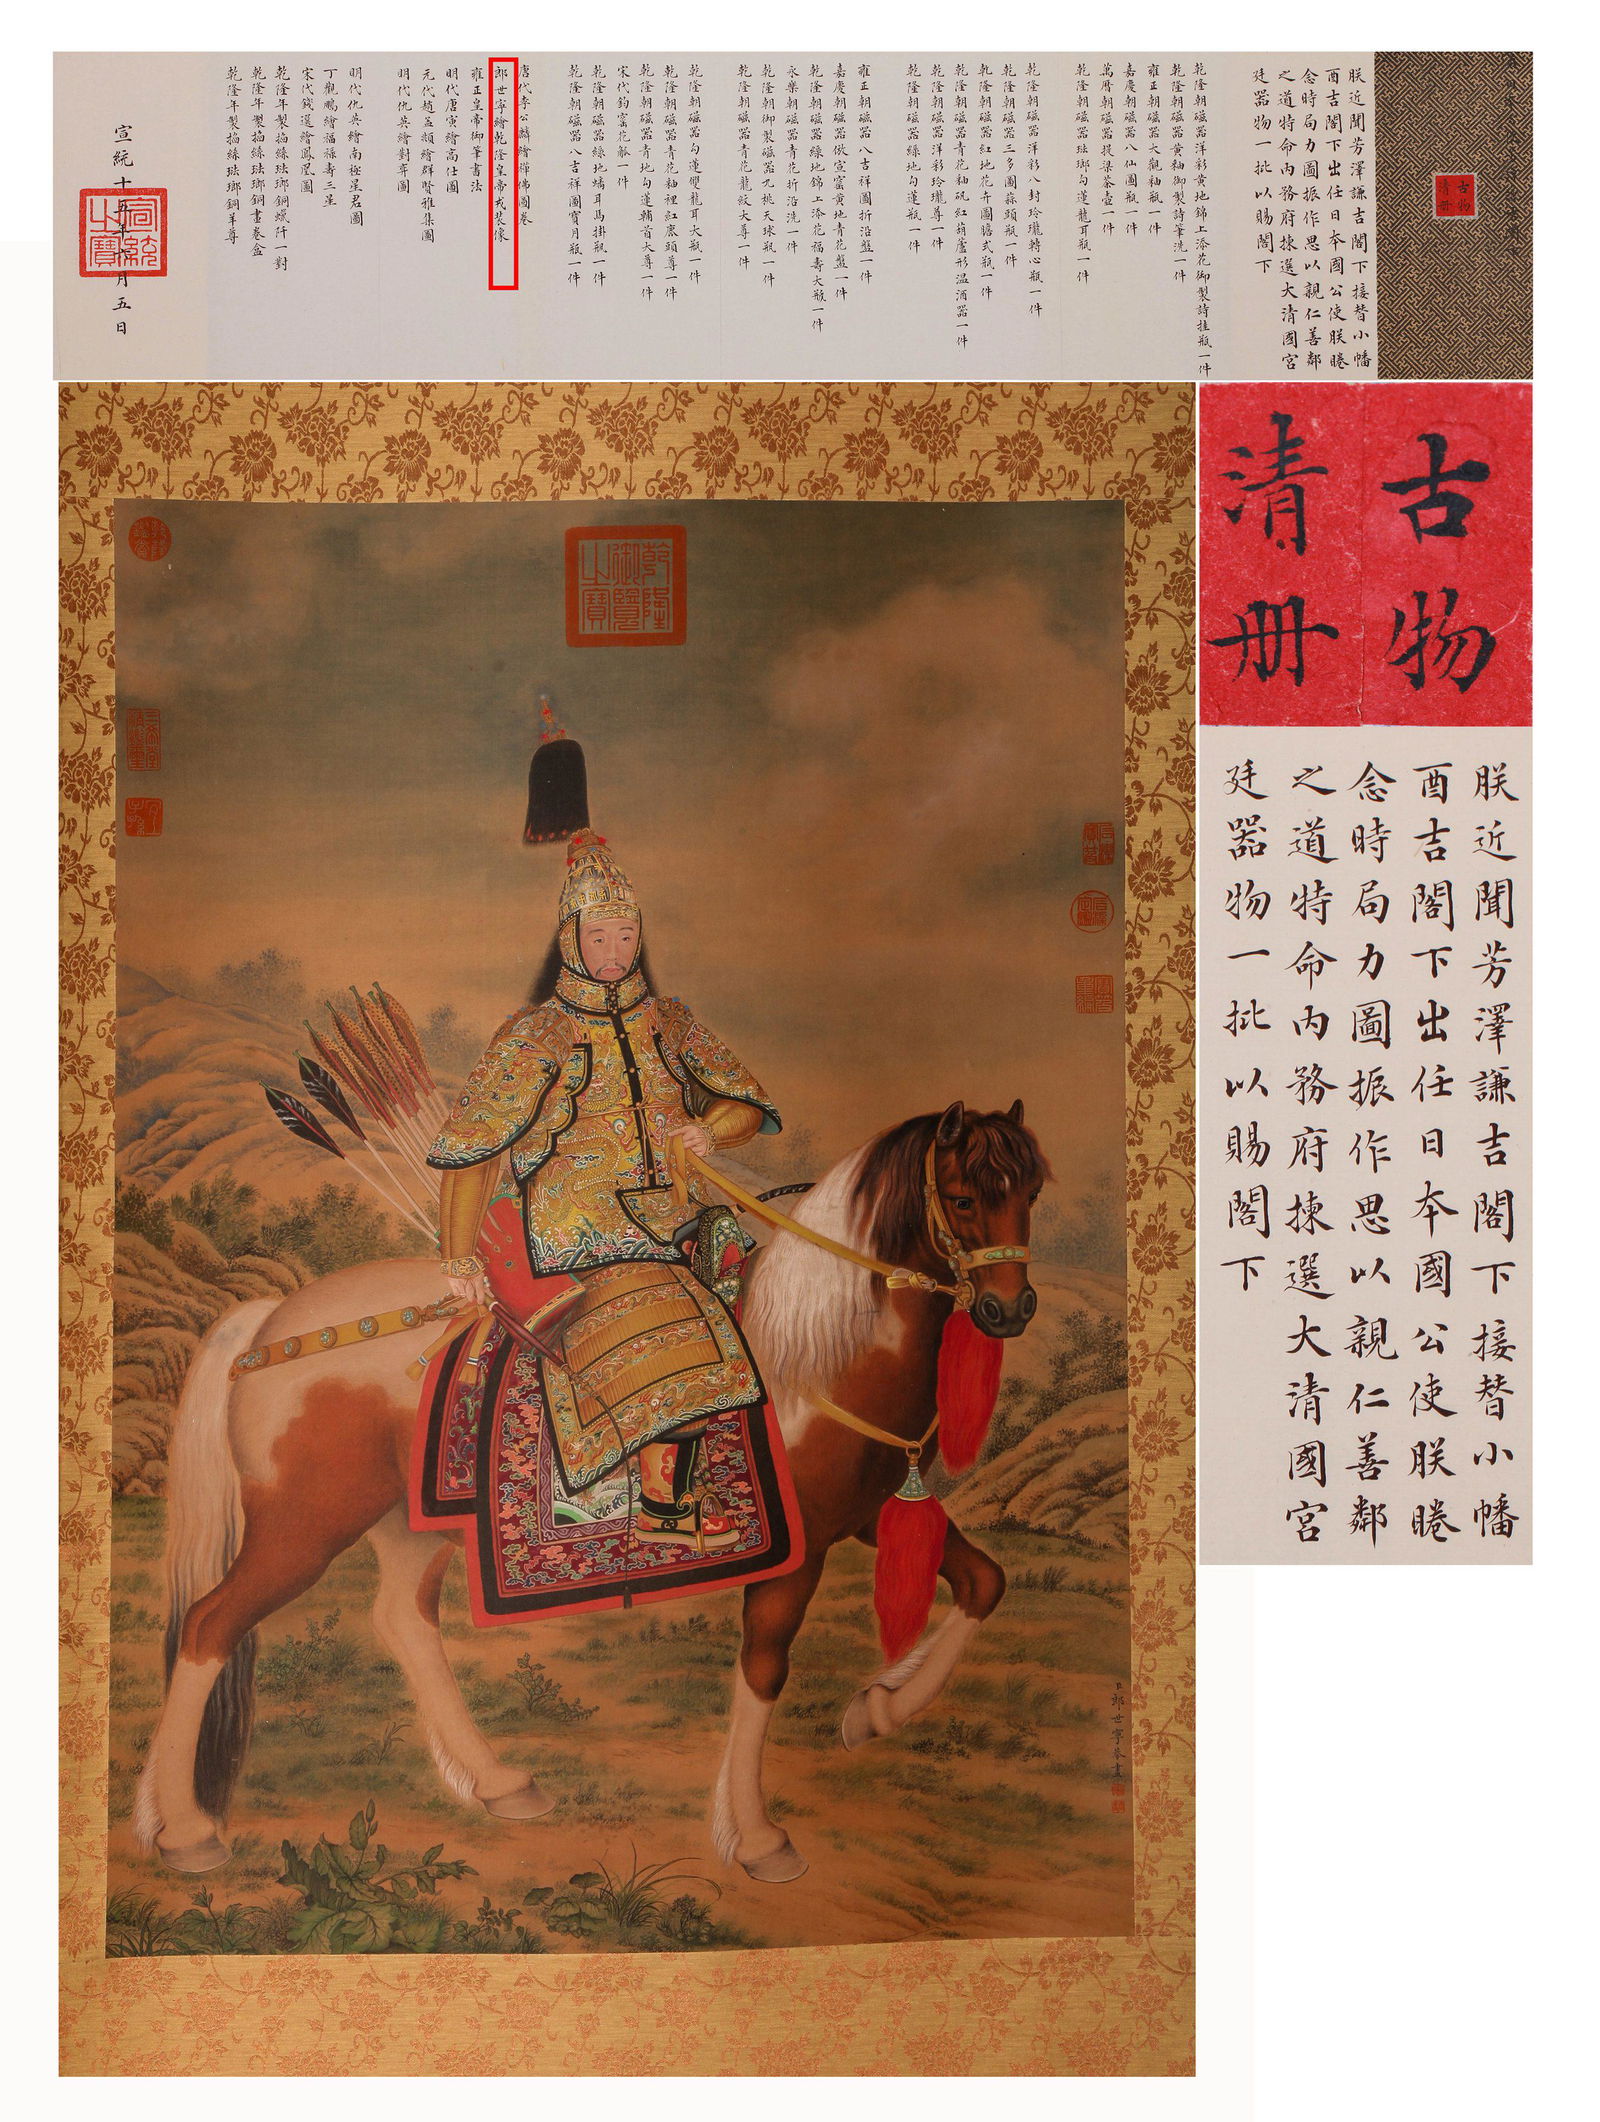 古物
清册
朕近聞芳澤謙吉閣下接替小幡
酉吉閣下出任日本國公使朕睠
念時局力圖振作思以親仁善鄰
之道特命内務府揀選大清國宮
廷器物一批以賜閣下
乾隆朝磁器洋彩黄地錦上添花御製詩挂瓶一件
乾隆朝磁器黄釉御製詩筆洗一件
雍正朝磁器大觀釉瓶一件
嘉慶朝磁器八仙圖瓶一件
萬曆朝磁器提梁茶壺一件
乾隆朝磁器琺瑯勾蓮龍耳瓶一件
乾隆朝磁器洋彩八封玲瓏轉心瓶一件
乾隆朝磁器三多圖蒜頭瓶一件
乾隆朝磁器紅地花卉圖膽式瓶一件
乾隆朝磁器青花釉矾紅葫蘆形温酒器一件
乾隆朝磁器洋彩玲瓏尊一件
乾隆朝磁器綠地勾蓮瓶一件
雍正朝磁器八吉祥圖折沿盤一件
嘉慶朝磁器倣宣窰黄地青花盤一件
乾隆朝磁器綠地錦上添花福壽大瓶一件
永樂朝磁器青花折沿洗一件
乾隆朝御製磁器九桃天球瓶一件
乾隆朝磁器青花龍紋大尊一件
乾隆朝磁器勾蓮雙龍耳大瓶一件
乾隆朝磁器青花釉裡紅鹿頭尊一件
乾隆朝磁器青地勾蓮輔首大尊一件
宋代鈞窰花觚一件
乾隆朝磁器綠地螭耳馬掛瓶一件
乾隆朝磁器八吉祥圖寶月瓶一件
唐代李公麟繪禪佛圖卷
郎世寧繪乾隆皇帝戎裝像
雍正皇帝御筆書法
明代唐寅繪高仕圖
元代趙孟頫繪群賢雅集圖
明代仇英繪對弈圖
明代仇英繪南極星君圖
丁觀鵬繪福祿壽三星
宋代錢選繪鳳凰圖
乾隆年製掐絲琺瑯銅蠟阡一對
乾隆年製掐絲琺瑯銅畫卷盒
乾隆年製掐絲琺瑯銅羊尊
宣統十五年六月五日
宣統之寶
古物
清册
朕近聞芳澤謙吉閣下接替小幡
酉吉閣下出任日本國公使朕睠
念時局力圖振作思以親仁善鄰
之道特命内務府揀選大清國宮
廷器物一批以賜閣下
乾隆御覽之寶
臣郎世寧恭畫